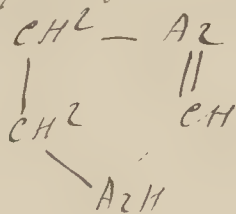 CH² — Az
CH² CH
AzH